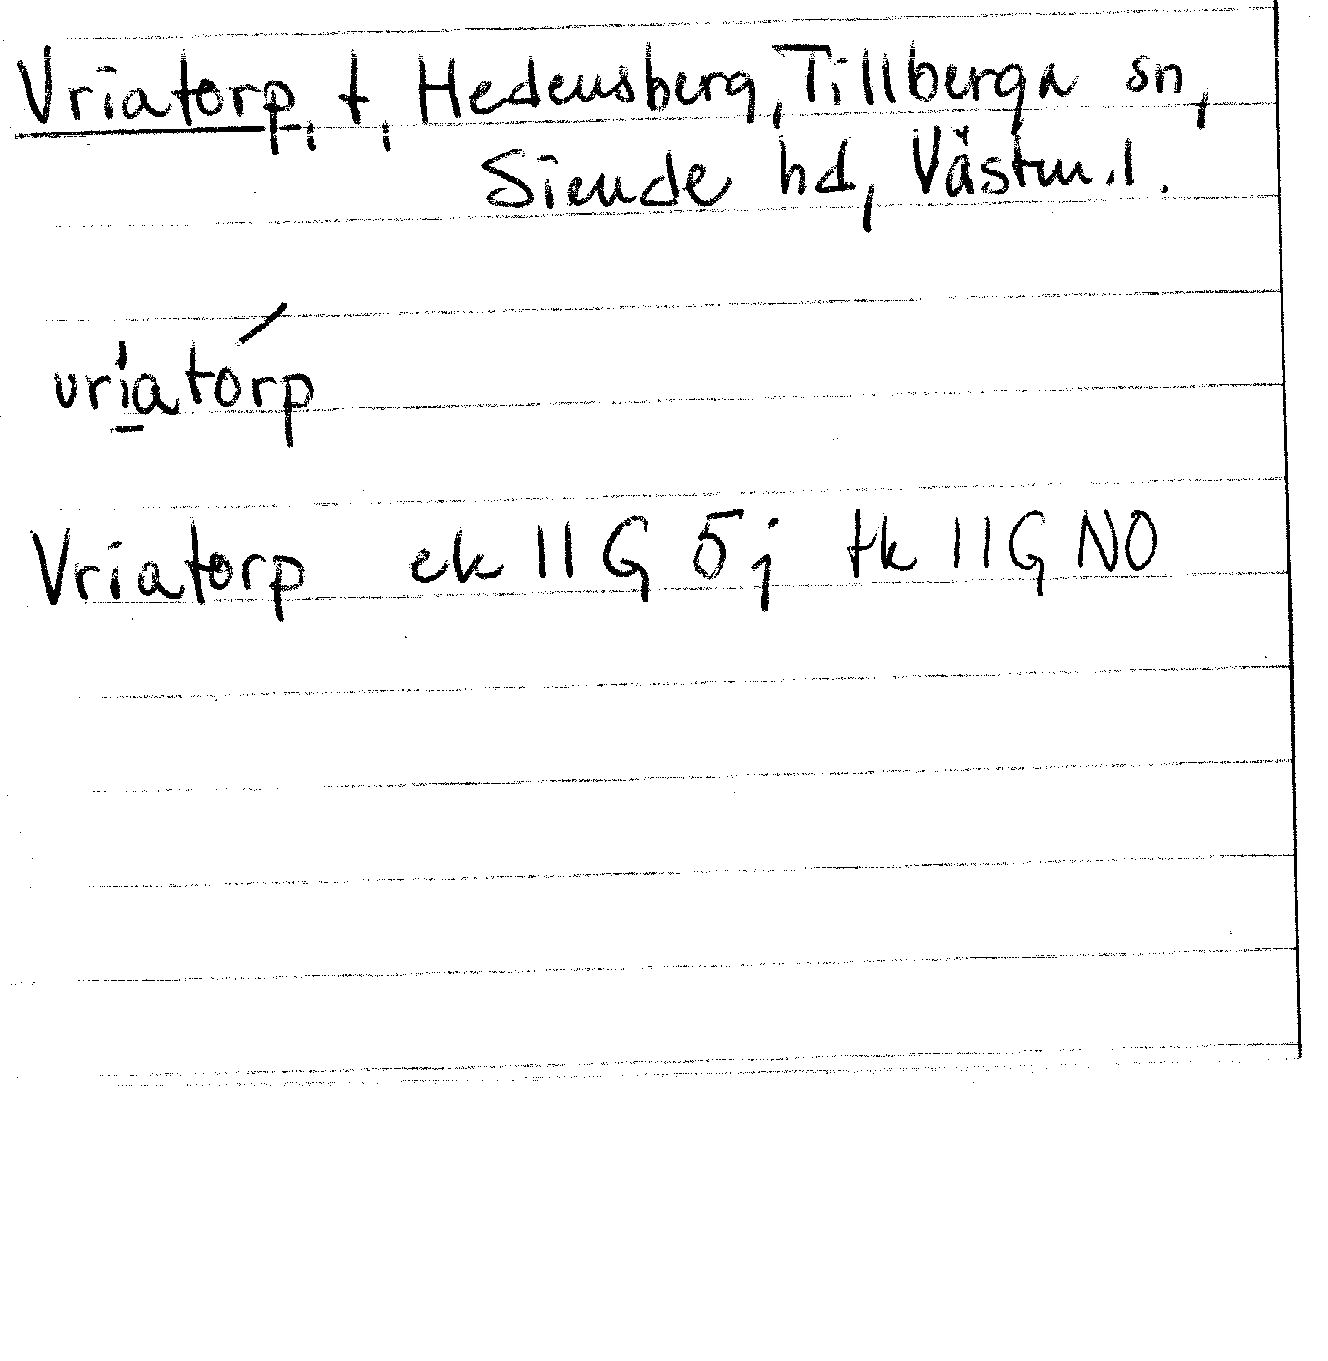 Vriatorp, t, Hedensberg, Tillberga sn,
Siende hd, Västm.l.
vri̱atórp
Vriatorp ek 11G 5j tk 11G NO